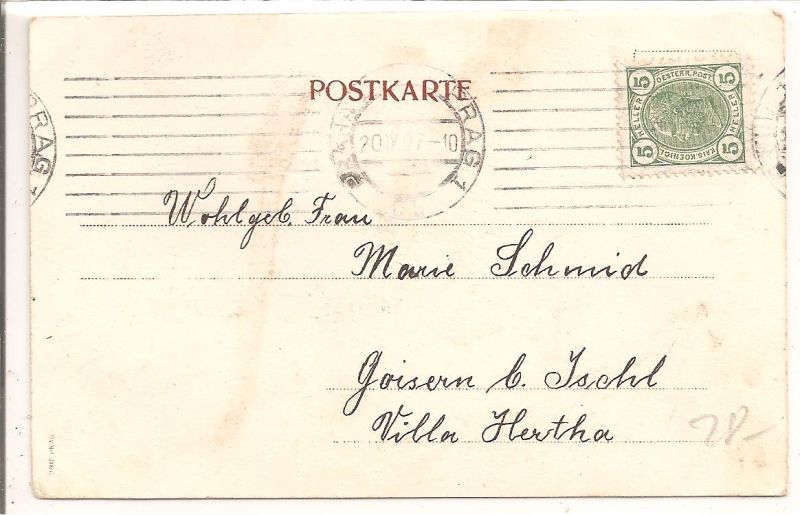 POSTKARTE
PRAG 1
20 IV 07-10
PRAG 1
5 OESTERR. POST. 5
HELLER
HELLER
5 KAIS. KOENIGL. 5
Wohlgeb. Frau
Marie Schmid
Goisern b. Ischl
Villa Hertha
28-